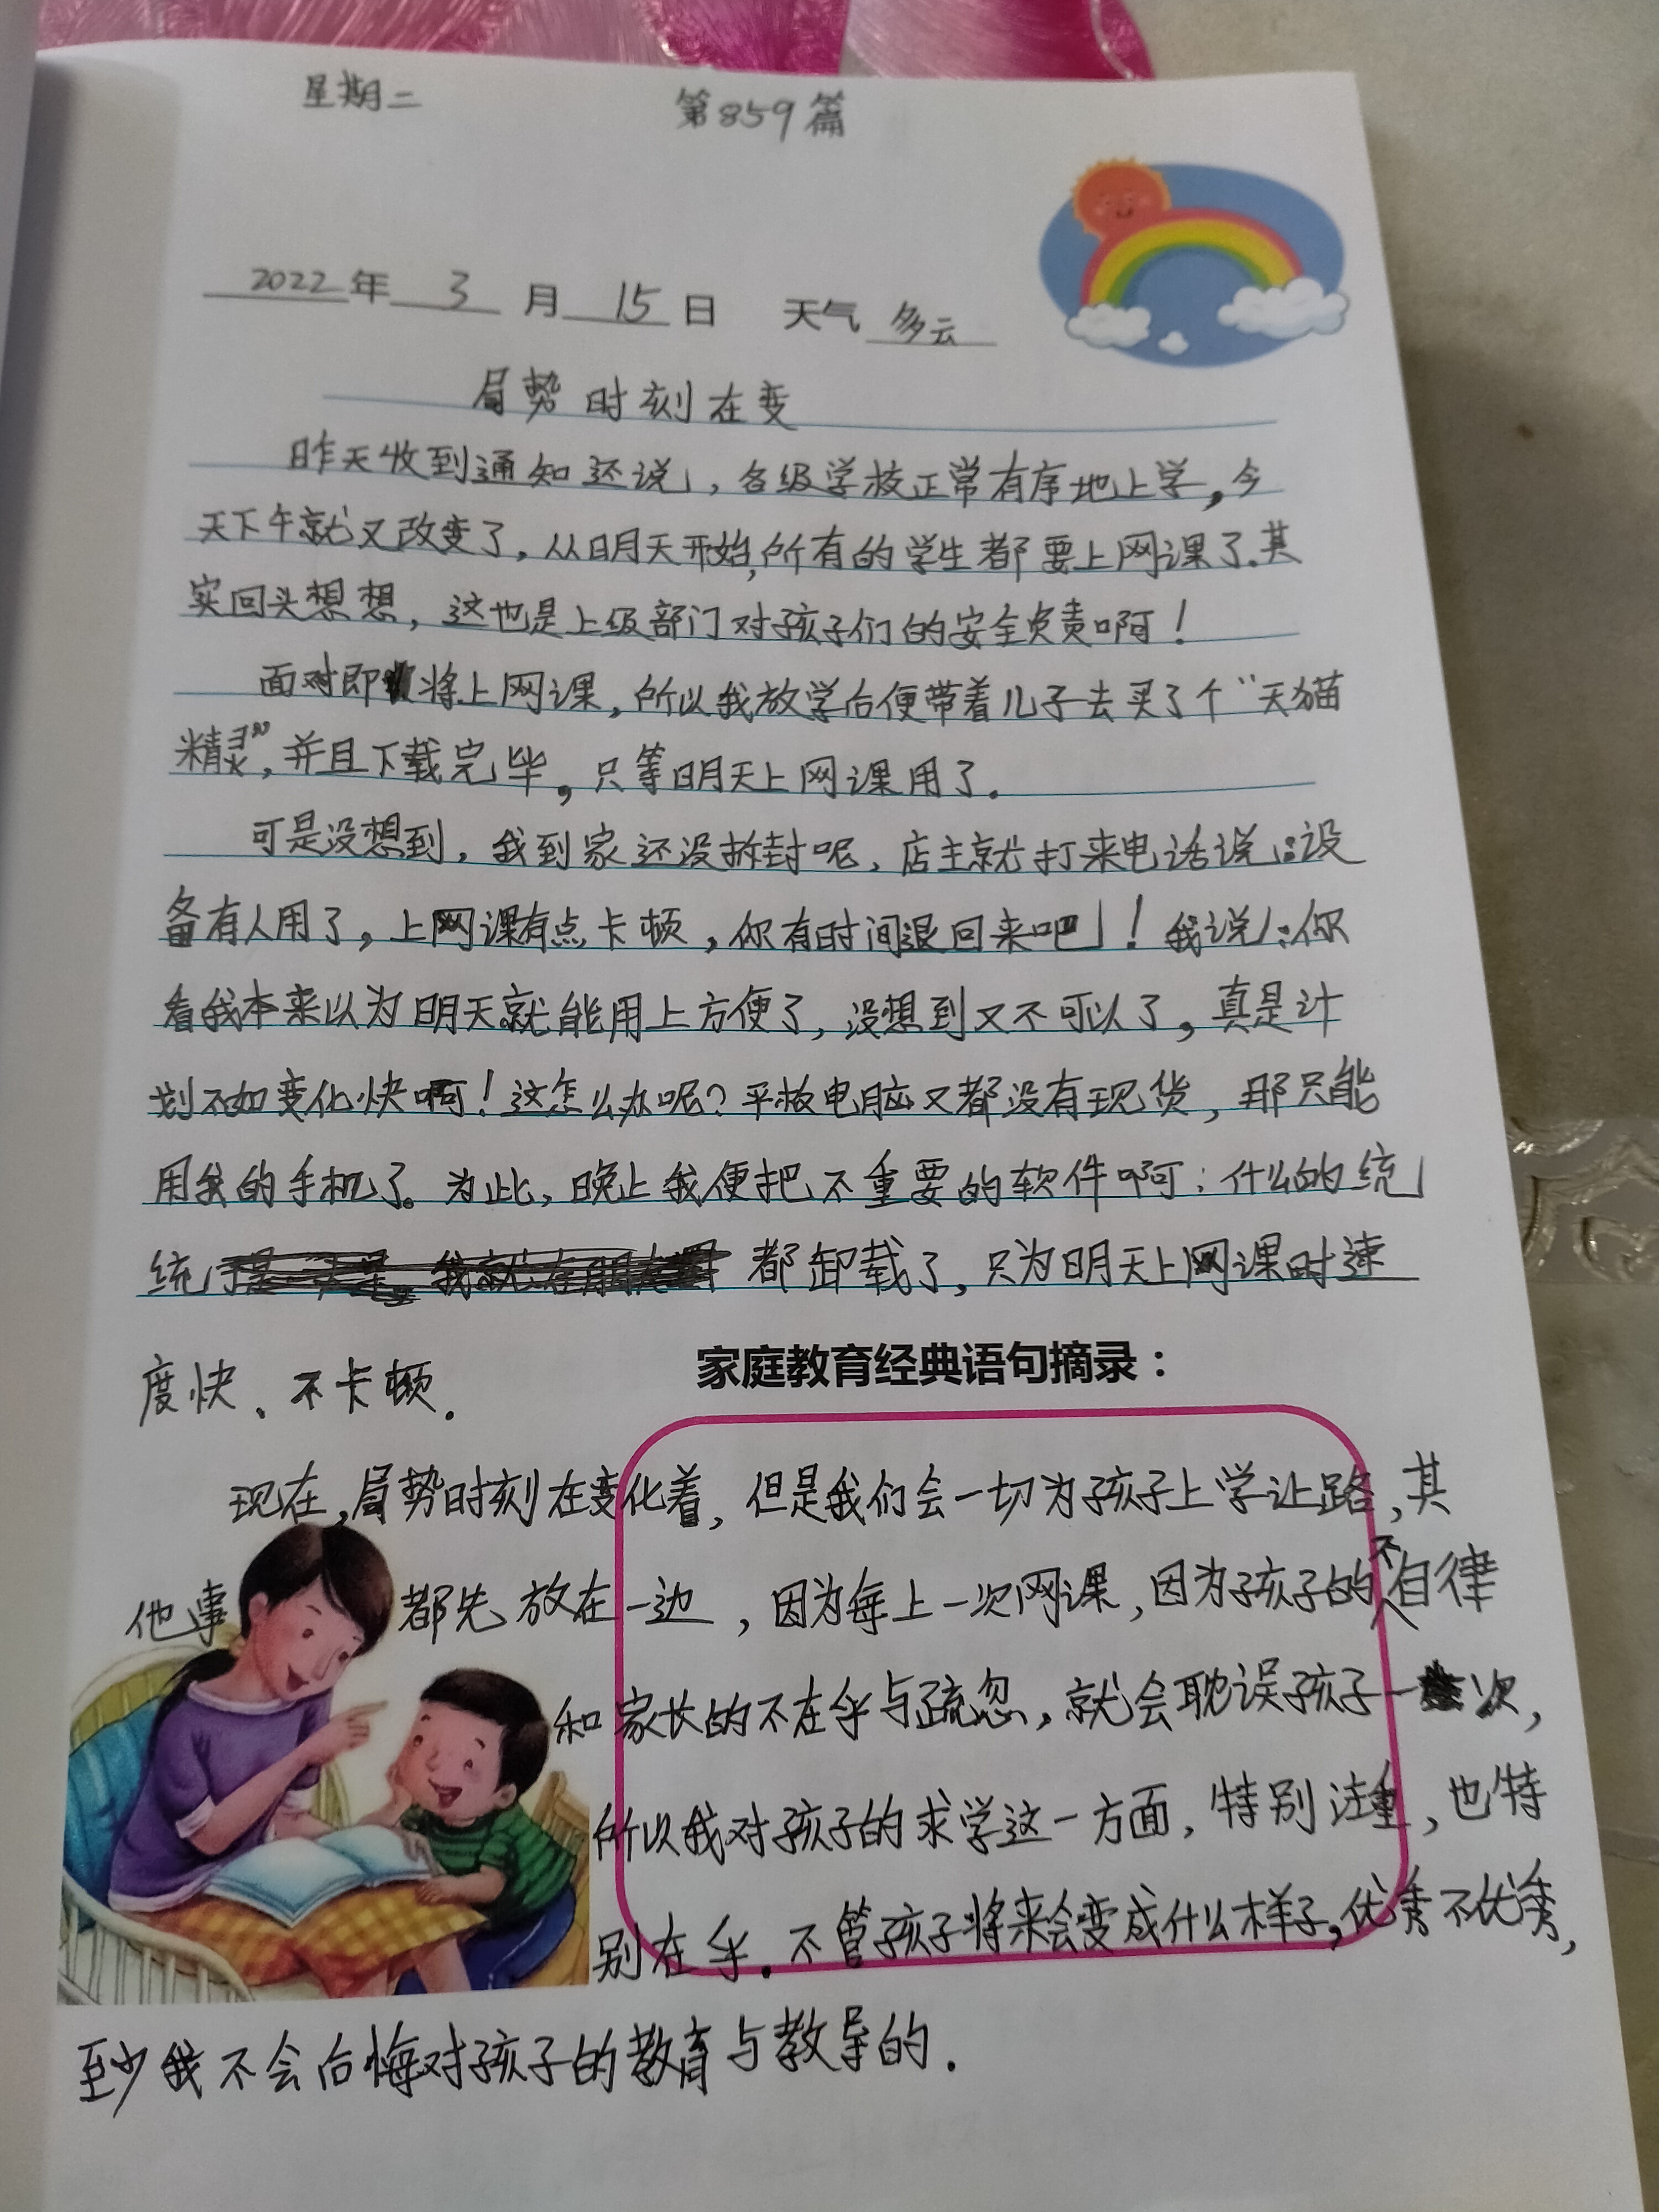 星期二 第859篇
2022年 3 月 15 日 天气 多云
局势时刻在变
昨天收到通知还说，各级学校正常有序地上学，今
天下午就又改变了，从明天开始，所有的学生都要上网课了.其
实回头想想，这也是上级部门对孩子们的安全负责啊！
面对即将上网课，所以我放学后便带着儿子去买了个“天猫
精灵”，并且下载完毕，只等明天上网课用了.
可是没想到，我到家还没拆封呢，店主就打来电话说：设
备有人用了，上网课有点卡顿，你有时间退回来吧！我说：你
看我本来以为明天就能用上方便了，没想到又不可以了，真是计
划不如变化快啊！这怎么办呢？平板电脑又都没有现货，那只能
用我的手机了。为此，晚上我便把不重要的软件啊；什么的统
统都卸载了，只为明天上网课时速
度快、不卡顿.
家庭教育经典语句摘录：
现在，局势时刻在变化着，但是我们会一切为孩子上学让路，其
他事都先放在一边，因为每上一次网课，因为孩子的不自律
和家长的不在乎与疏忽，就会耽误孩子一次，
所以我对孩子的求学这一方面，特别注重，也特
别在乎.不管孩子将来会变成什么样子，优秀不优秀，
至少我不会后悔对孩子的教育与教导的.